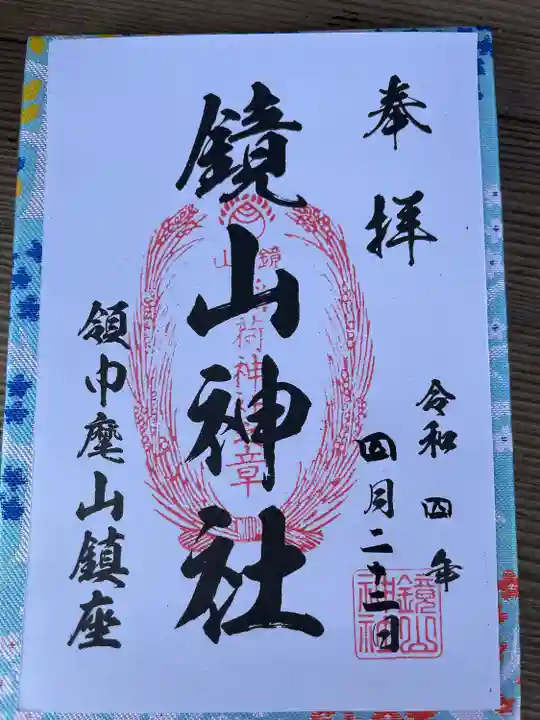 奉拝
令和四年
四月二十二日
鏡山神社
鏡山
稲荷神社章
領巾麾山鎮座
鏡山
神